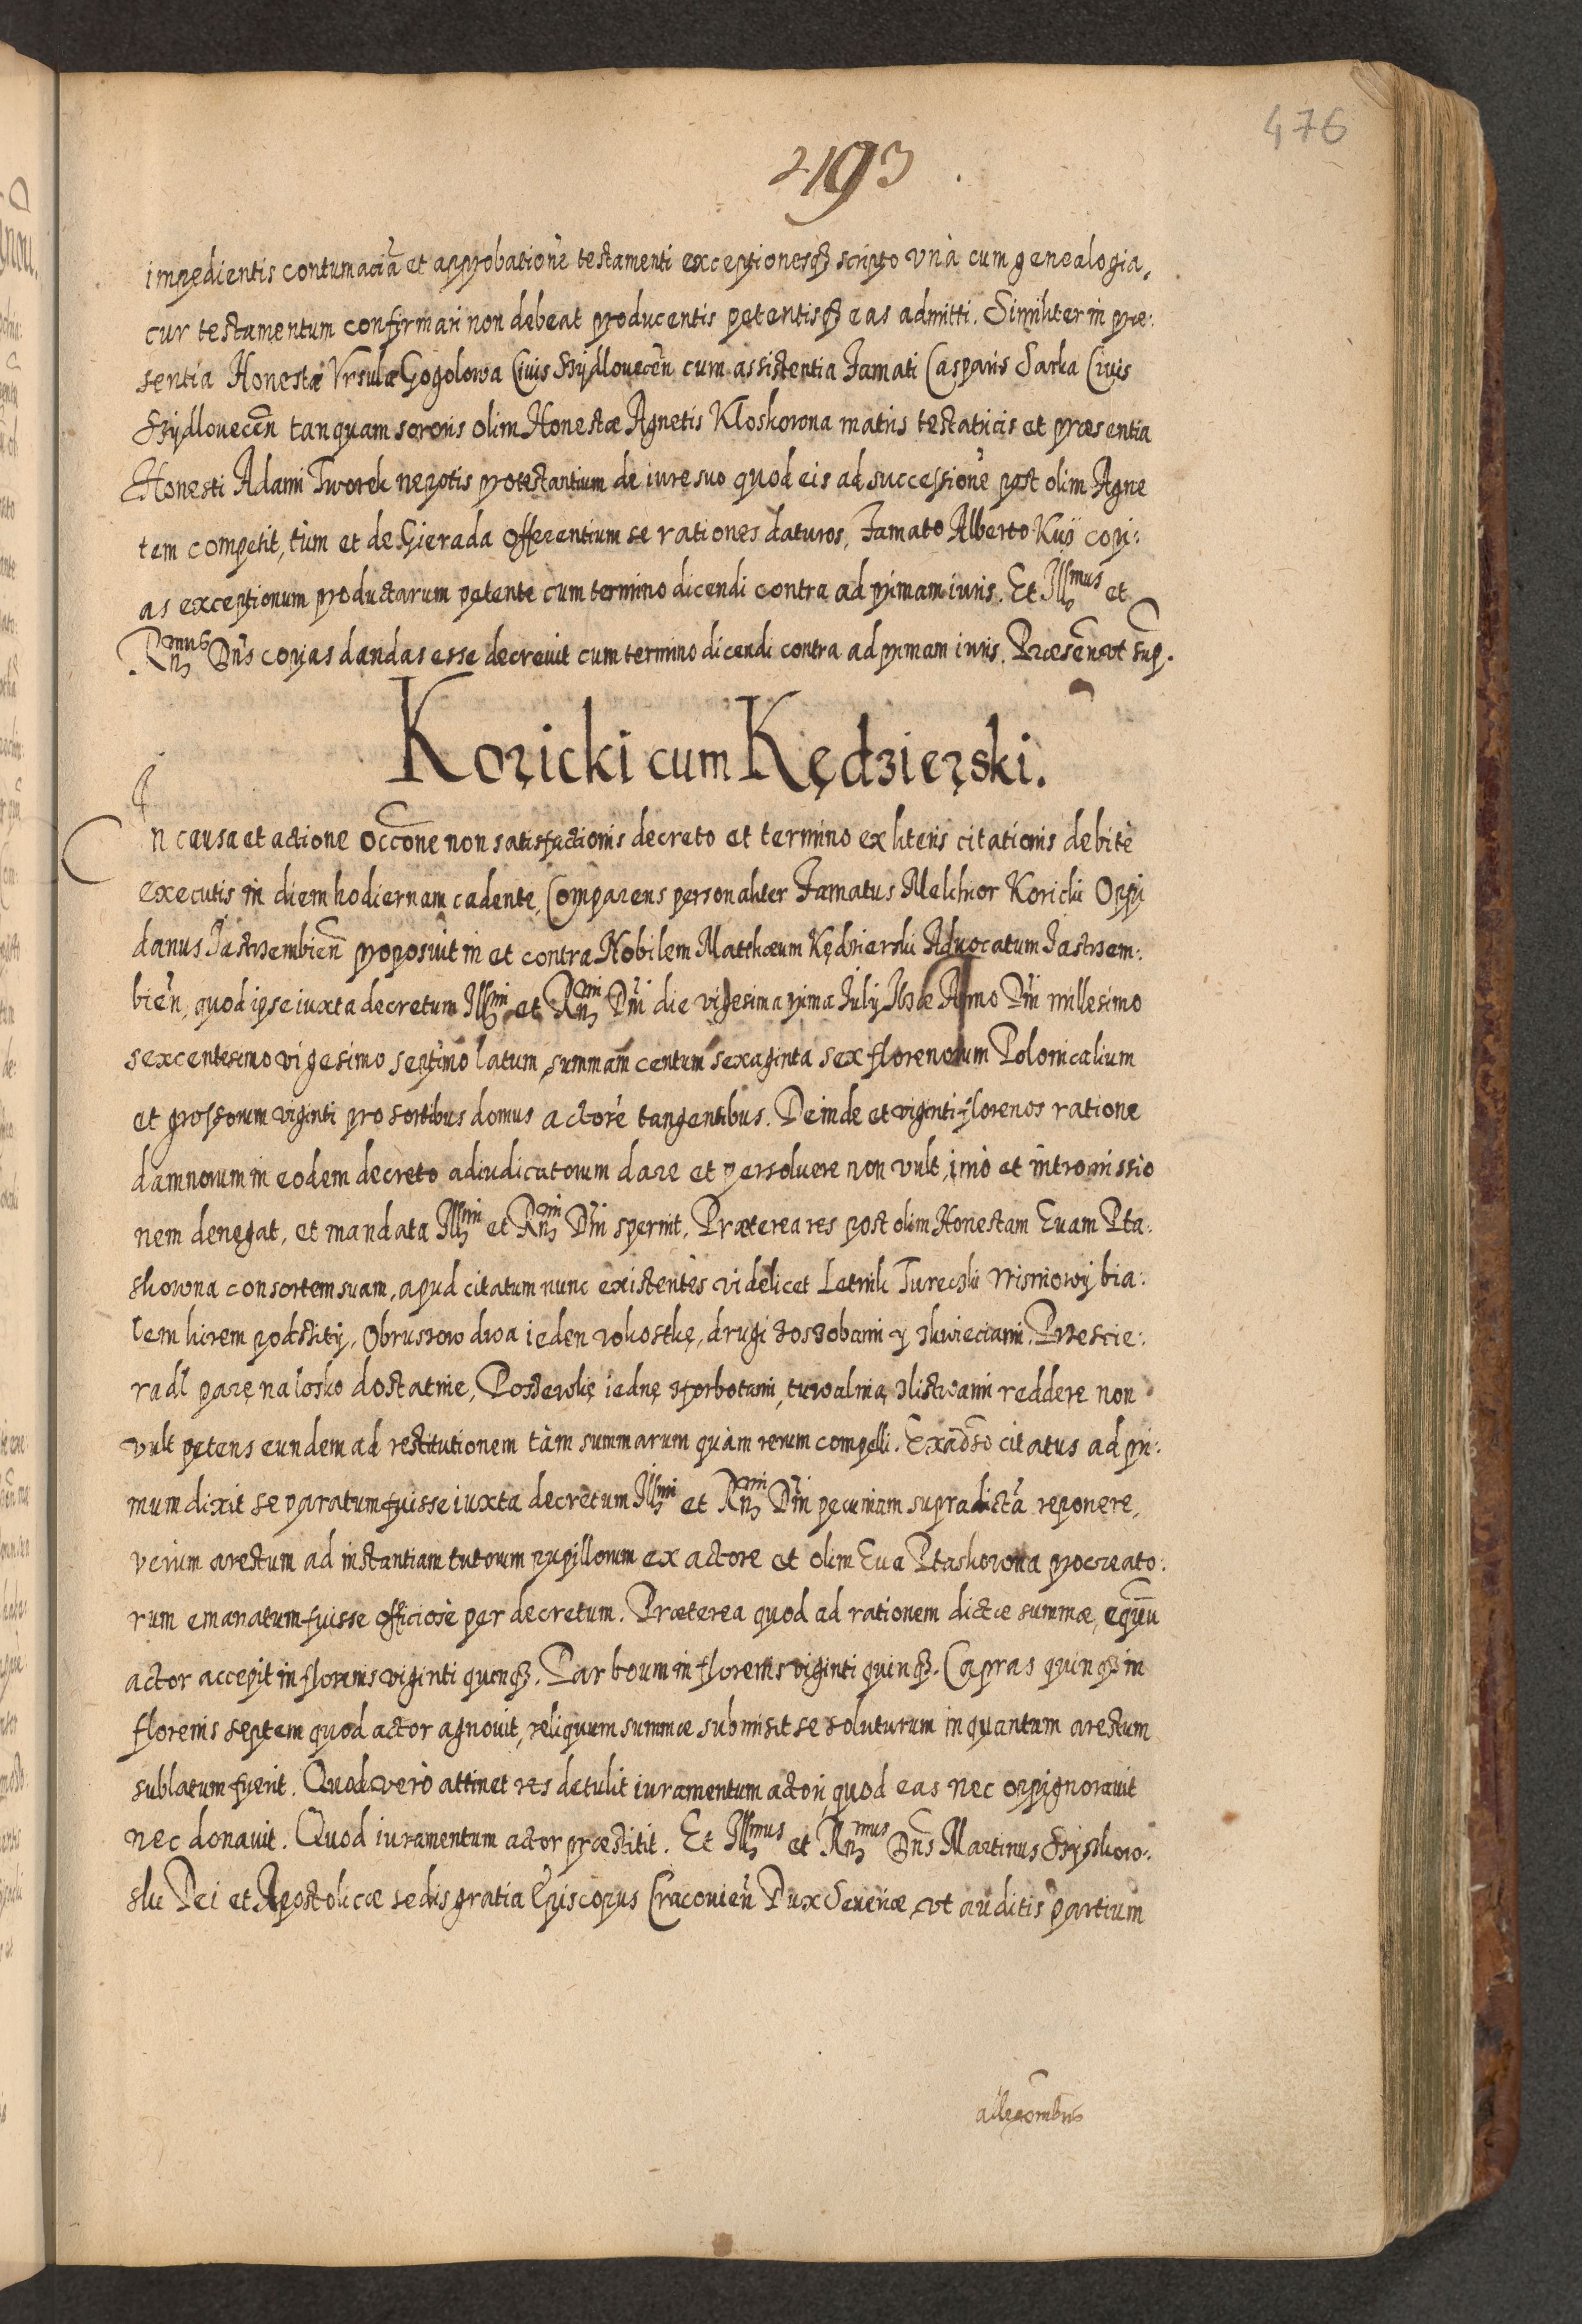 476
493
impedientis contumaciā et approbationē testamenti exceptionesq̃ scripto vnà cum genealogia,
cur testamentum confirmari non debeat producentis petentisq̃ eas admitti. Similiter in præ:
sentia Honestæ Vrsulæ Gogolowa Ciuis Szydlouecēn cum assistentia Famati Casparis Sarka Ciuis
Szydlouecēn tanquam sororis olim Honestæ Agnetis Kloskowna matris testatricis et præsentia
Honesti Adami Tworek nepotis protestantium de iure suo quod eis ad successionē post olim Agne
tem competit, tùm et de Gierada offerentium se rationes daturos, Famato Alberto Kuÿ copi:
as exceptionum productarum petente cum termino dicendi contra ad primam iuris. Et Illmus et
Rndmus Dn̄s copias dandas esse decreuit cum termino dicendi contra ad primam iuris. Præsen̄ vt sup̄.
Koricki cum Kędzierski.
In causa et actione occōne non satisfactionis decreto et termino ex literis citationis debitè
executis in diem hodiernam cadente, Comparens personaliter Famatus Melchior Koricki Oppi
danus Jastrzembiēn proposuit in et contra Nobilem Matthæum Kędzierski Aduocatum Jastrzem:
biēn, quod ipse iuxta decretum Illmi et Rndmi Dn̄i die vigesima prima July Ilzæ Anno Dn̄i millesimo
sexcentesimo vigesimo septimo latum, summam centum sexaginta sex florenorum Polonicalium
et grossorum viginti pro sortibus domus actorē tangentibus. Deinde et viginti florenos ratione
damnorum in eodem decreto adiudicatorum dare et persoluere non vult, imò et intromissio
nem denegat, et mandata Illmi et Rndmi Dn̄i spernit. Præterea res post olim Honestam Euam Pta:
skowna consortem suam, apud citatum nunc existentes videlicet Letnik Turecki Wisniowy bia:
lem kirem podszity, Obrusow dwa ieden w kostkę, drugi z osobami y z kwieciami. Przescie:
radl parę na losko dostatnie, Poszewkę iednę z forbotami, tuwalnią z listwami reddere non
vult petens eundem ad restitutionem tàm summarum quàm rerum compelli. Exadūso citatus ad pri:
mum dixit se paratum fuisse iuxta decretum Illmi et Rndmi Dn̄i pecuniam supradictā reponere,
verum arestum ad instantiam tutorum pupillorum ex actore et olim Eua Ptaskowna procreato:
rum emanatum fuisse officiosè per decretum. Præterea quod ad rationem dictæ summæ, equūm
actor accepit in florenis viginti quinq̃. Par boum in florenis viginti quinq̃. Capras quinq̃ in
florenis septem quod actor agnouit, reliquum summæ submisit se soluturum in quantum arestum
sublatum fuerit. Quod verò attinet res detulit iuramentum actori, quod eas nec oppignorauit
nec donauit. Quod iuramentum actor præstitit. Et Illmus et Rndmus Dn̄s Martinus Szyszkow:
ski Dei et Apostolicæ sedis gratia Episcopus Cracouiēn Dux Seueriæ, vt auditis partium
allegōnibus